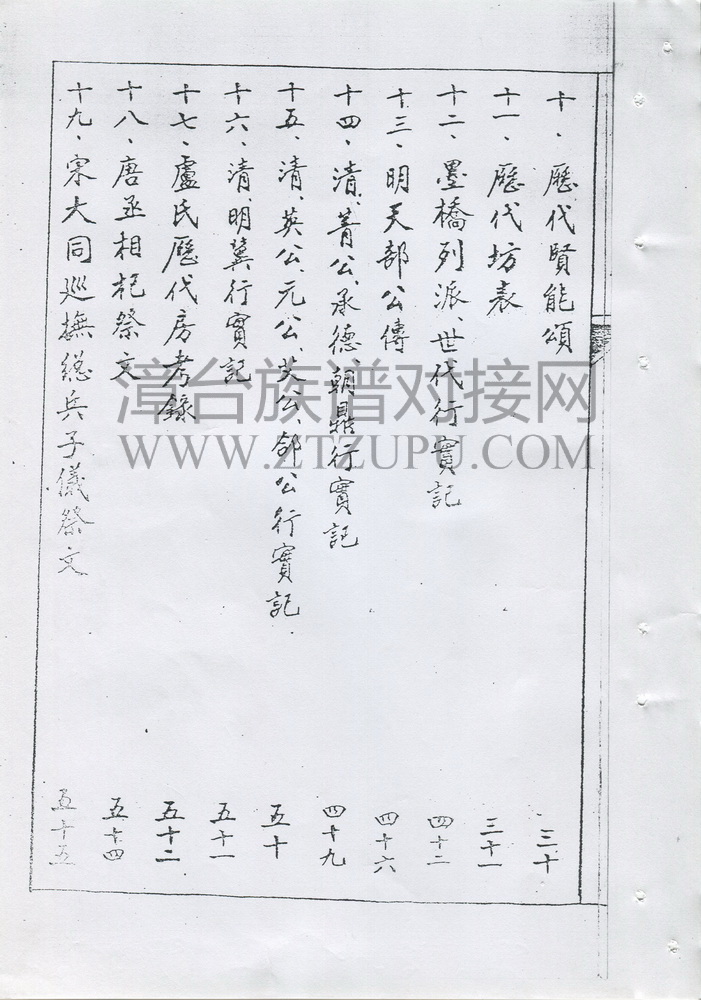 十、歷代賢能頌 三十
十一、歷代坊表 三十一
十二、墨橋列派、世代行實記 四十二
十三、明天部公傳 四十六
十四、清、菁公、承德、朝鼎行實記 四十九
十五、清、英公、元公、芠公、郃公行實記 五十
十六、清、明冀行實記 五十一
十七、盧氏歷代房考錄 五十二
十八、唐丞相杞祭文 五十四
十九、宋大同巡撫總兵子儀祭文 五十五
漳台族谱对接网
WWW.ZTZUPU.COM